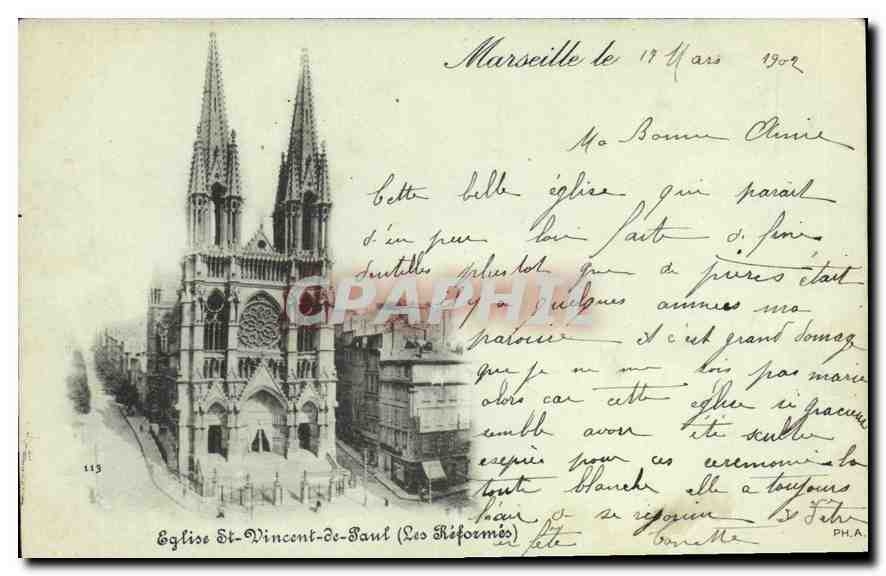 Marseille le 19 Mars 1902
Ma Bonne Aimie
Cette belle église qui parait
d'un peu loin faite de fine
dentelles plustot que de pierres était
il y a quelques années ma
paroisse il c'est grand domage
que je ne me sois pas mariée
alors car cette eglise si gracieuse
semble avoir été sculter
exepré pour ces ceremonie la
toute blanche elle a toujours
l'air de se rejouir
en fête
CPAPHIL
113
Eglise St-Vincent-de-Paul (Les Réformés)
PH.A.